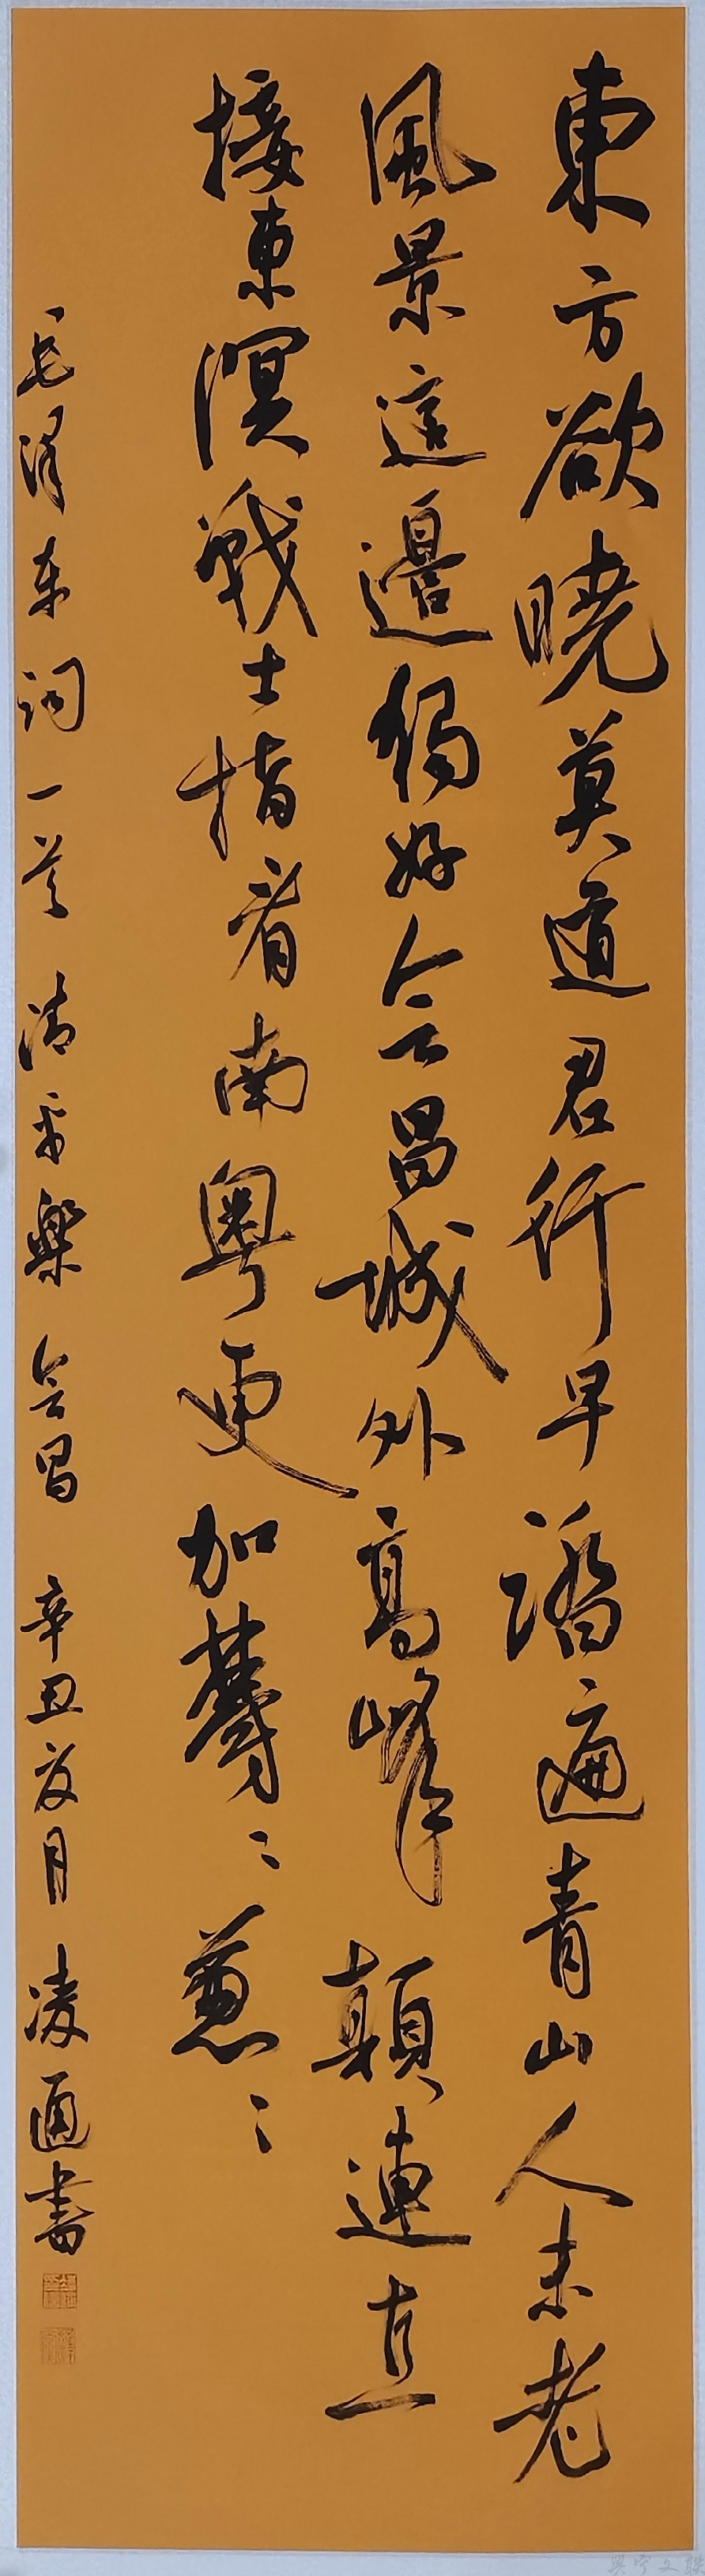 東方欲曉莫道君行早踏遍青山人未老
風景這邊獨好会昌城外高峰顛連直
接東溟戰士指看南粵更加鬱〻蔥〻
毛泽东词一首 清平樂 会昌 辛丑夏月 凌通書